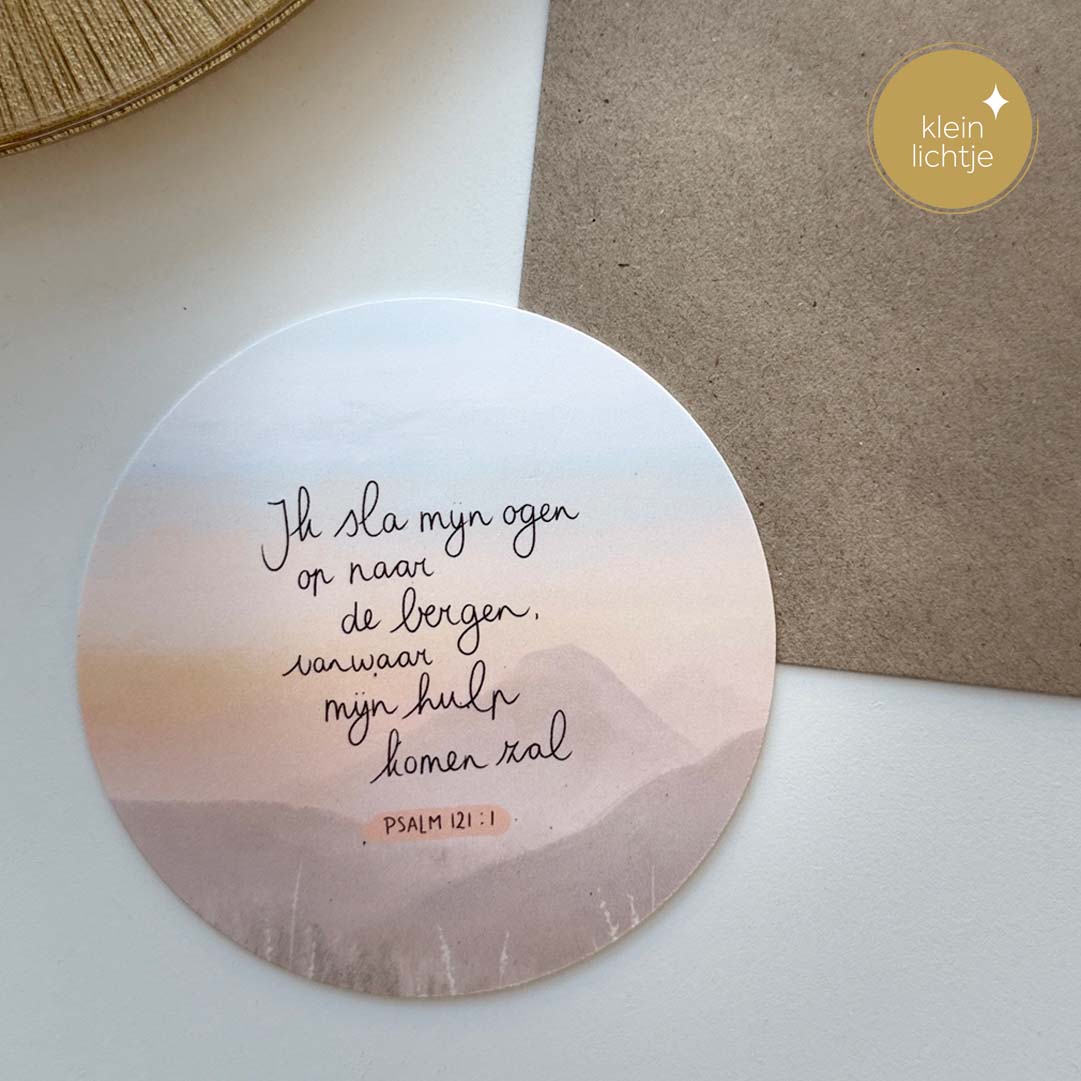 klein
lichtje
Ik sla mijn ogen
op naar
de bergen,
vanwaar
mijn hulp
komen zal
PSALM 121:1